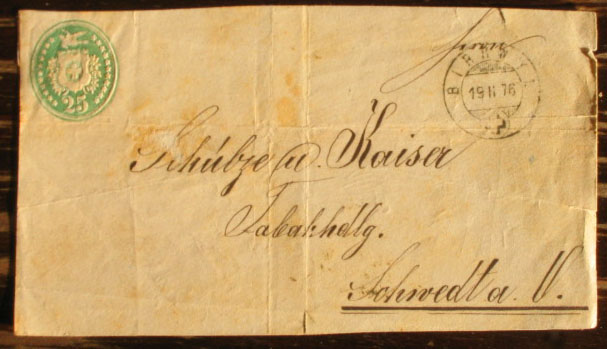 25
Herrn
19 II 76
Schübze u. Kaiser
Tabakhdlg.
Schwedt a. O.